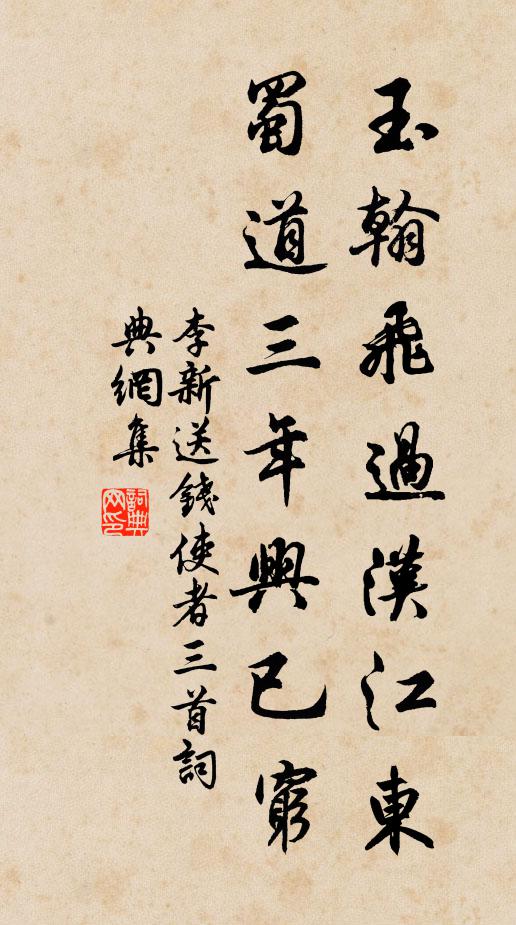 玉翰飛過漢江東
蜀道三年興已窮
李新送錢使者三首詞
典網集
詞典網印